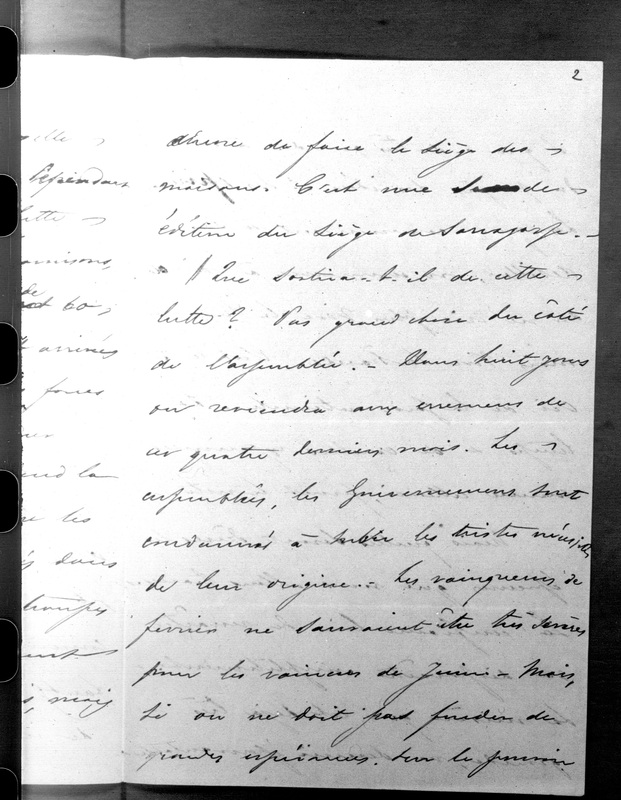 2
d'heure de faire le siège des
maisons. C'est une de
édition du siège de Saragosse. -
Que sortira-t-il de cette
lutte ? Pas grand chose du côté
de l'assemblée. - Dans huit jours
on reviendra aux erremens de
ces quatre derniers mois. Les
assemblées, les Gouvernemens sont
condamnés à subir les tristes nécessités
de leur origine. - Les vainqueurs de
février ne sauraient être très sévères
pour les vaincus de Juin - Mais,
si on ne doit pas fonder de
grandes espérances sur le pouvoir
Cependant
lutte
60
arrivés
forces
la
les
dans
troupes
mais